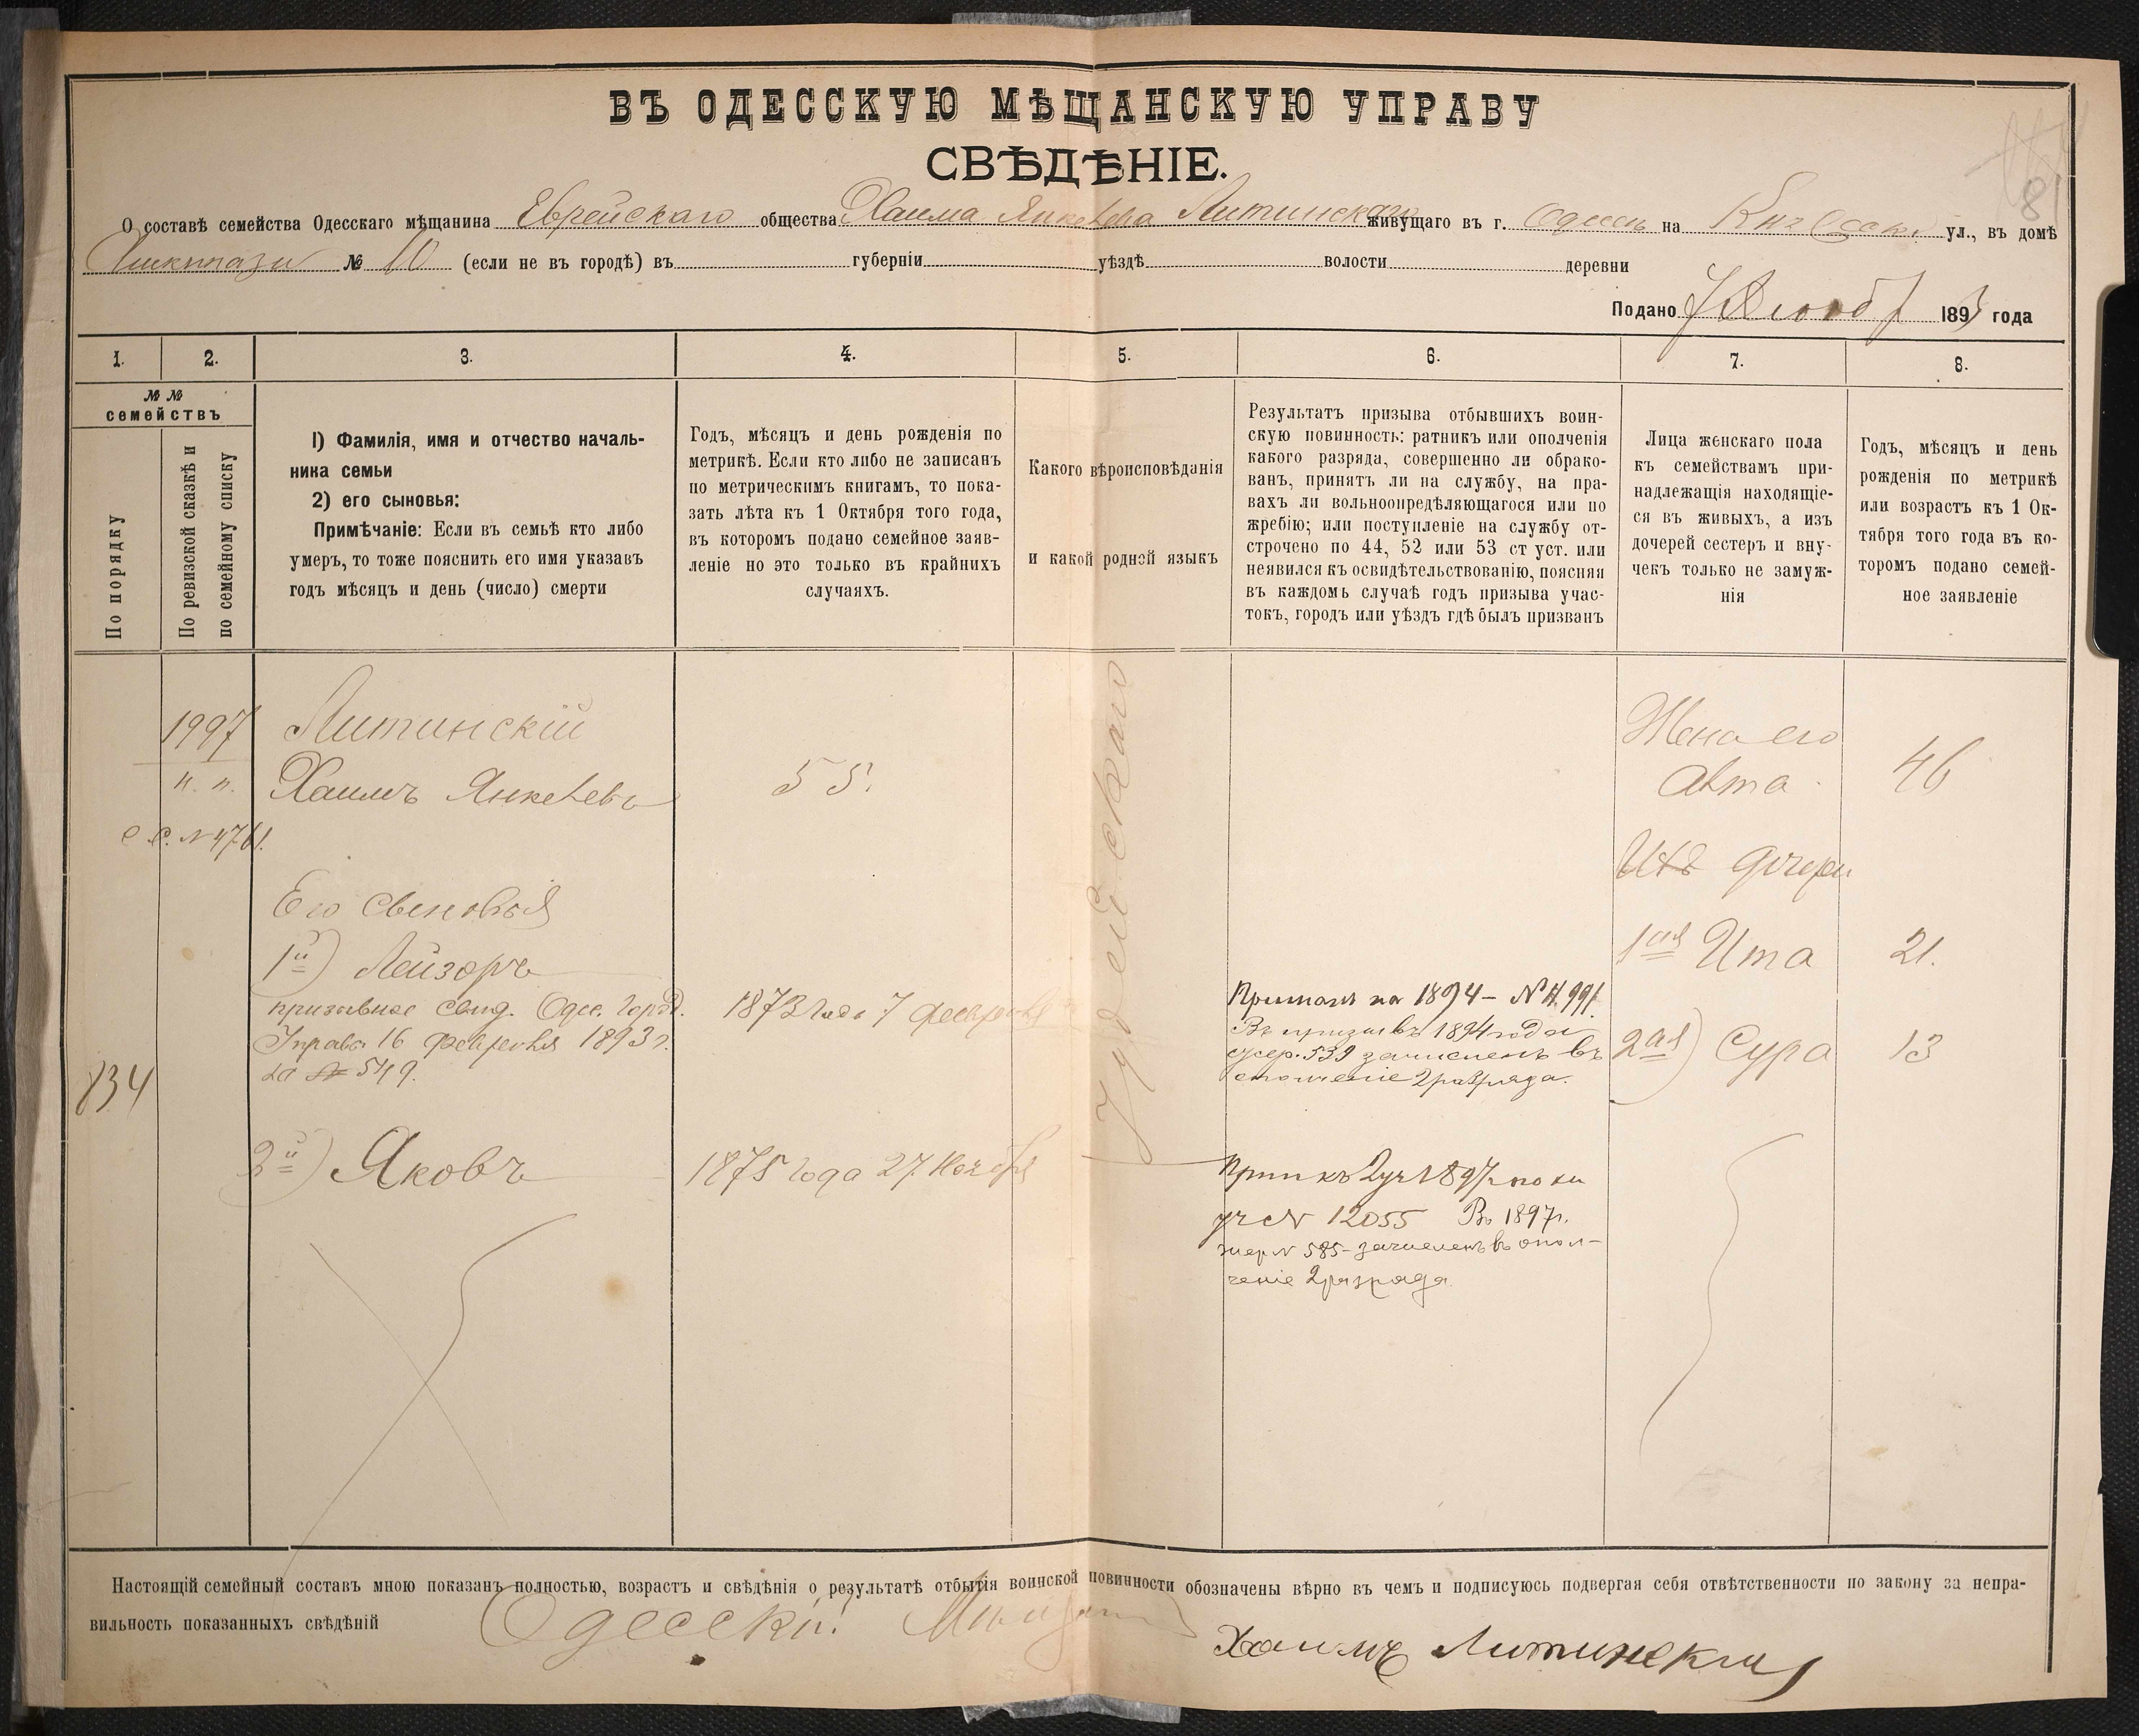 ВЪ ОДЕССКУЮ МѢЩАНСКУЮ УПРАВУ
СВѢДѢНІЕ.
О составѣ семейства Одесскаго мѣщанина Еврейскаго общества Хаима Янкелева Литинскаго живущаго въ г. Одессѣ на ул., въ домѣ
№ 10 (если не въ городѣ) въ губерніи уѣздѣ волости деревни
Подано 7 189 года
1. 2. 3. 4. 5. 6. 7. 8.
№ №
семействъ
По порядку
По ревизской сказкѣ и
по семейному списку
1) Фамилія, имя и отчество началь-
ника семьи
2) его сыновья:
Примѣчаніе: Если въ семьѣ кто либо
умеръ, то тоже пояснить его имя указавъ
годъ мѣсяцъ и день (число) смерти
Годъ, мѣсяцъ и день рожденія по
метрикѣ. Если кто либо не записанъ
по метрическимъ книгамъ, то пока-
зать лѣта къ 1 Октября того года,
въ которомъ подано семейное заяв-
леніе но это только въ крайнихъ
случаяхъ.
Какого вѣроисповѣданія
и какой родной языкъ
Результатъ призыва отбывшихъ воин-
скую повинность: ратникъ или ополченія
какого разряда, совершенно ли обрако-
ванъ, принятъ ли на службу, на пра-
вахъ ли вольноопредѣляющагося или по
жребію; или поступленіе на службу от-
строчено по 44, 52 или 53 ст уст. или
неявился къ освидѣтельствованію, поясняя
въ каждомъ случаѣ годъ призыва учас-
токъ, городъ или уѣздъ гдѣ былъ призванъ
Лица женскаго пола
къ семействамъ при-
надлежащія находящіе-
ся въ живыхъ, а изъ
дочерей сестеръ и вну-
чекъ только не замуж-
нія
Годъ, мѣсяцъ и день
рожденія по метрикѣ
или возрастъ къ 1 Ок-
тября того года въ ко-
торомъ подано семей-
ное заявленіе
834
1997
н. п.
с. с. № 4761.
Литинскій
Хаимъ Янкелевъ
55
Его сыновья
1й) Лейзоръ
призывное свид. Одес. Город.
Управы 16 февраля 1893 г.
за № 549.
1873 года 7 февраля
2й) Яковъ
1875 года 27 Ноября
Іудейскаго
на 1894 – №
Въ призывъ 1894 года
жер. 539 зачисленъ въ
ополченіе 2 разряда.
къ 2 уч 1897
уч № 12055 Въ 1897 г.
жер № 585 – зачисленъ въ опол–
ченіе 2 разряда
Жена его
46
Ихъ дочери
1ая Ита 21.
2ая) Сура 13
Настоящій семейный составъ мною показанъ полностью, возрастъ и свѣдѣнія о результатѣ отбытія воинской повинности обозначены вѣрно въ чемъ и подписуюсь подвергая себя отвѣтственности по закону за непра-
вильность показанныхъ свѣдѣній Одесскій
Хаимъ Литинскій